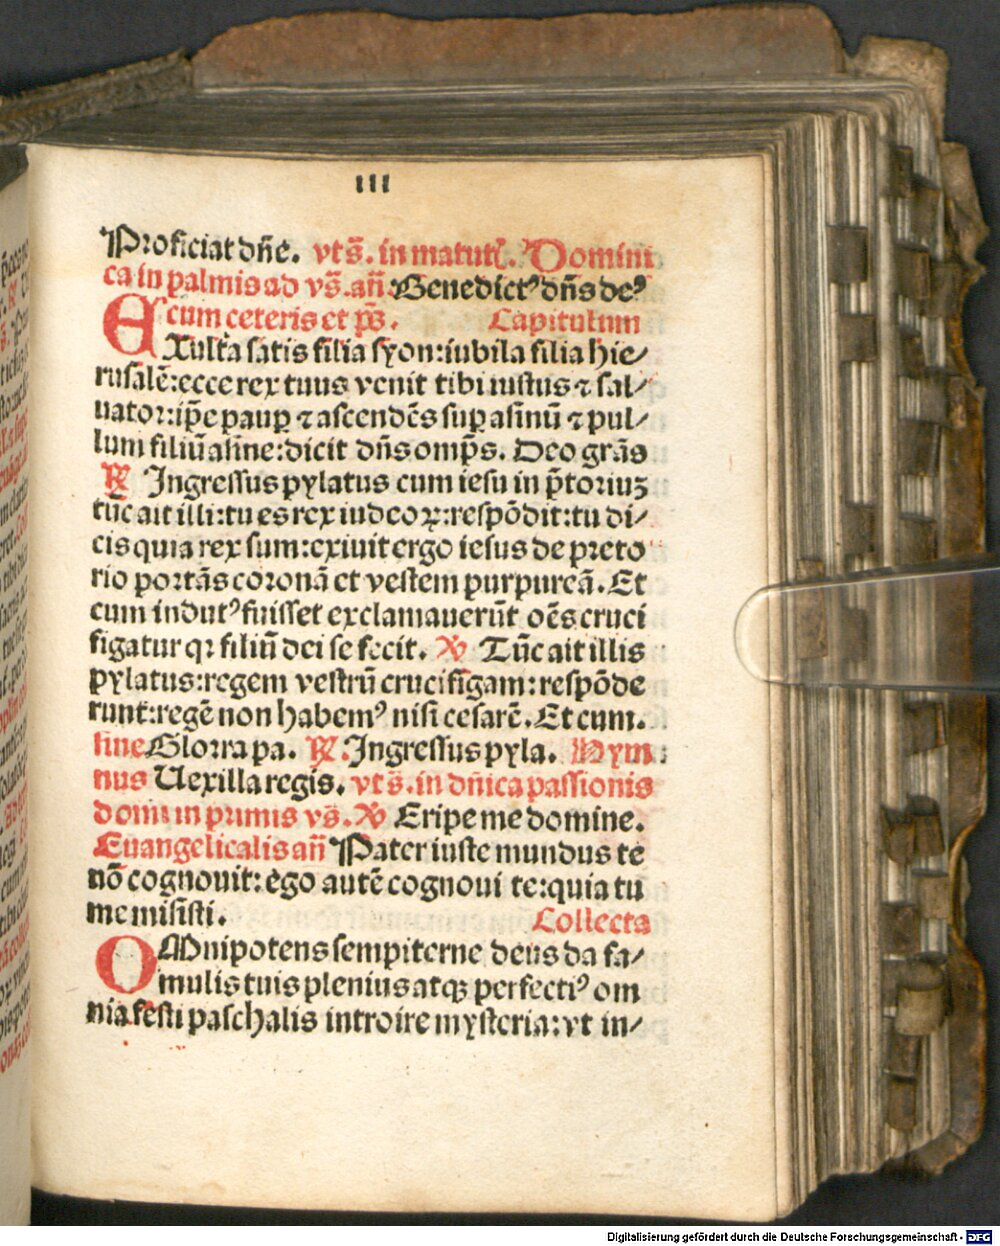 III
Proficiat dn̄e. vts̄. in matut᷑. Domini
ca in palmis ad vs̄. an̄ Benedictꝰ dn̄s deꝰ
cum ceteris et ps̄. Capitulum
EXult᷑a satis filia syon: iubila filia hie⸗
rusalē: ecce rex tuus venit tibi iustus ⁊ sal⸗
uator: ip̄e paup̲ ⁊ ascendēs sup̲ asinū ⁊ pul⸗
lum filiū asine: dicit dn̄s omp̄s. Deo grās
℟ Ingressus pylatus cum iesu in p̄toriuꝫ
tūc ait illi: tu es rex iudeoꝝ: respōdit: tu di⸗
cis quia rex sum: exiuit ergo iesus de preto
rio portās coronā et vestem purpureā. Et
cum indutꝰ fuisset exclamauerūt oēs cruci
figatur qꝛ filiū dei se fecit. ℣ Tūc ait illis
pylatus: regem vestrū crucifigam: respōde
runt: regē non habemꝰ nisi cesarē. Et cum.
sine Gloria pa. ℟. Ingressus pyla. Hym
nus Uexilla regis. vts̄. in dn̄ica passionis
domi in primis vs̄. ℣ Eripe me domine.
Euangelicalis an̄ Pater iuste mundus te
nō cognouit: ego autē cognoui te: quia tu
me misisti. Collecta
OMnipotens sempiterne deus da fa⸗
mulis tuis plenius atqꝫ perfectiꝰ om
nia festi paschalis introire mysteria: vt in⸗
Digitalisierung gefördert durch die Deutsche Forschungsgemeinschaft - DFG